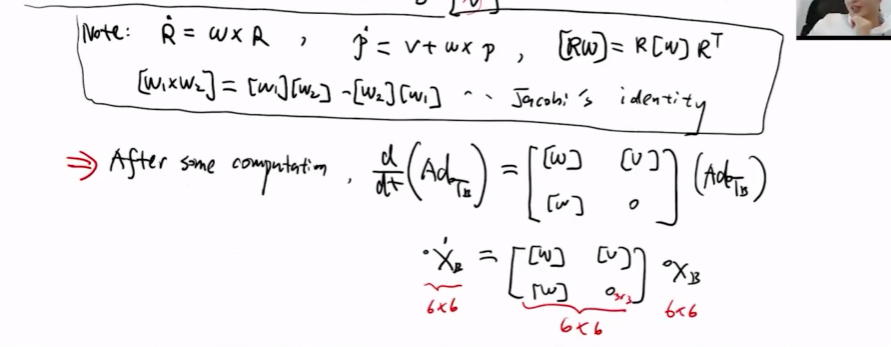 [v]
Note: Ṙ = ω × R , ṗ = v + ω × p , [Rω] = R [ω] Rᵀ
[ω₁×ω₂] = [ω₁][ω₂] - [ω₂][ω₁] ·· Jacobi's identity
⇒ After some computation, d/dt (Ad_{T_B}) = [ [ω] [v] ; [ω] 0 ] (Ad_{T_B})
°Ẋ_B = [ [ω] [v] ; [ω] 0₃ₓ₃ ] °X_B
6×6 6×6 6×6